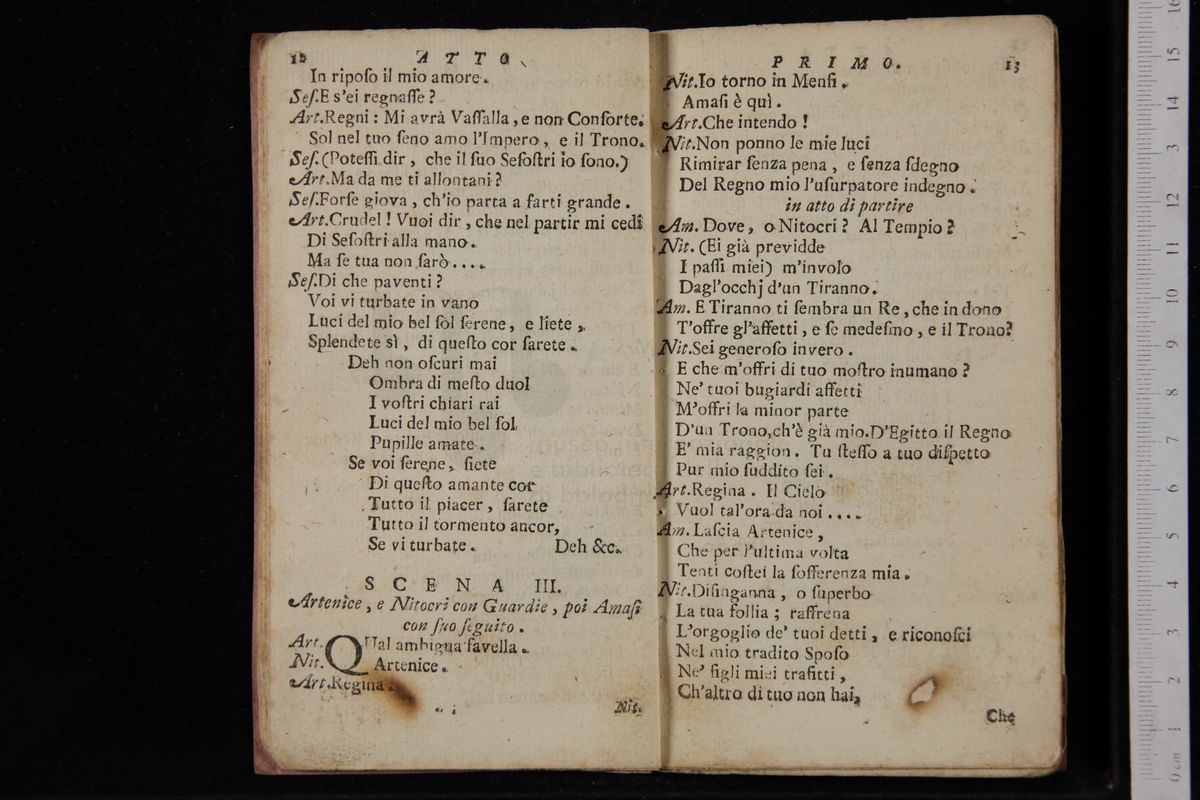 12 ATTO
In ripoſo il mio amore.
Seſ.E s'ei regnaſſe ?
Art.Regni : Mi avrà Vaſſalla, e non Conſorte.
Sol nel tuo ſeno amo l'Impero, e il Trono.
Seſ. (Poteſſi dir, che il ſuo Seſoſtri io ſono.)
Art.Ma da me ti allontani ?
Seſ.Forſe giova, ch'io parta a farti grande.
Art.Crudel ! Vuoi dir, che nel partir mi cedi
Di Seſoſtri alla mano.
Ma ſe tua non ſarò....
Seſ.Di che paventi ?
Voi vi turbate in vano
Luci del mio bel ſol ſerene, e liete,
Splendete sì, di queſto cor ſarete.
Deh non oſcuri mai
Ombra di meſto duol
I voſtri chiari rai
Luci del mio bel ſol
Pupille amate.
Se voi ſerene, ſiete
Di queſto amante cor
Tutto il piacer, ſarete
Tutto il tormento ancor,
Se vi turbate. Deh &c.
SCENA III.
Artenice, e Nitocri con Guardie, poi Amaſi
con ſuo ſeguito.
Art. QUal ambigua favella.
Nit. Artenice.
Art.Regina.
Nit.
PRIMO. 13
Nit.Io torno in Menfi.
Amaſi è quì.
Art.Che intendo !
Nit.Non ponno le mie luci
Rimirar ſenza pena, e ſenza ſdegno
Del Regno mio l'uſurpatore indegno.
in atto di partire
Am. Dove, o Nitocri ? Al Tempio ?
Nit. (Ei già previdde
I paſſi miei) m'involo
Dagl'occhj d'un Tiranno.
Am. E Tiranno ti ſembra un Re, che in dono
T'offre gl'affetti, e ſe medeſmo, e il Trono?
Nit.Sei generoſo invero.
E che m'offri di tuo moſtro inumano ?
Ne' tuoi bugiardi affetti
M'offri la minor parte
D'un Trono,ch'è già mio.D'Egitto il Regno
E' mia raggion. Tu ſteſſo a tuo diſpetto
Pur mio ſuddito ſei.
Art.Regina. Il Cielo
Vuol tal'ora da noi....
Am. Laſcia Artenice,
Che per l'ultima volta
Tenti coſtei la ſofferenza mia.
Nit.Diſinganna, o ſuperbo
La tua follia ; raffrena
L'orgoglio de' tuoi detti, e riconoſci
Nel mio tradito Spoſo
Ne' figli miei trafitti,
Ch'altro di tuo non hai,
Che